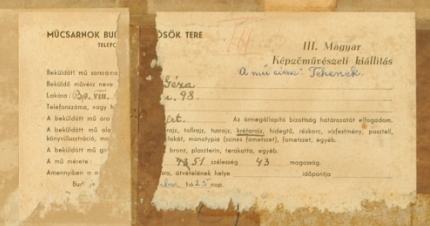 MŰCSARNOK BU ŐSÖK TERE
TELEF
III. Magyar
Képzőművészeti kiállítás
A mű címe: Tehenek.
Beküldött mű sorszáma
Beküldő művész neve Géza
Lakása: Bp. VIII. 98.
Telefonszáma, vagy h
A beküldött mű áro Az ármegállapító bizottság határozatát elfogadom.
A beküldött mű ola rajz, tollrajz, tusrajz, krétarajz, hidegtű, rézkarc, vízfestmény, pasztell,
könyvillusztráció, mo monotypia (színes fametszet), fametszet, egyéb.
A beküldött mű bronz, plaszterin, terakotta, egyéb.
A mű mérete: 51 szélesség 43 magasság.
Amennyiben a átvételének helye időpontja
Bud 25 nap.